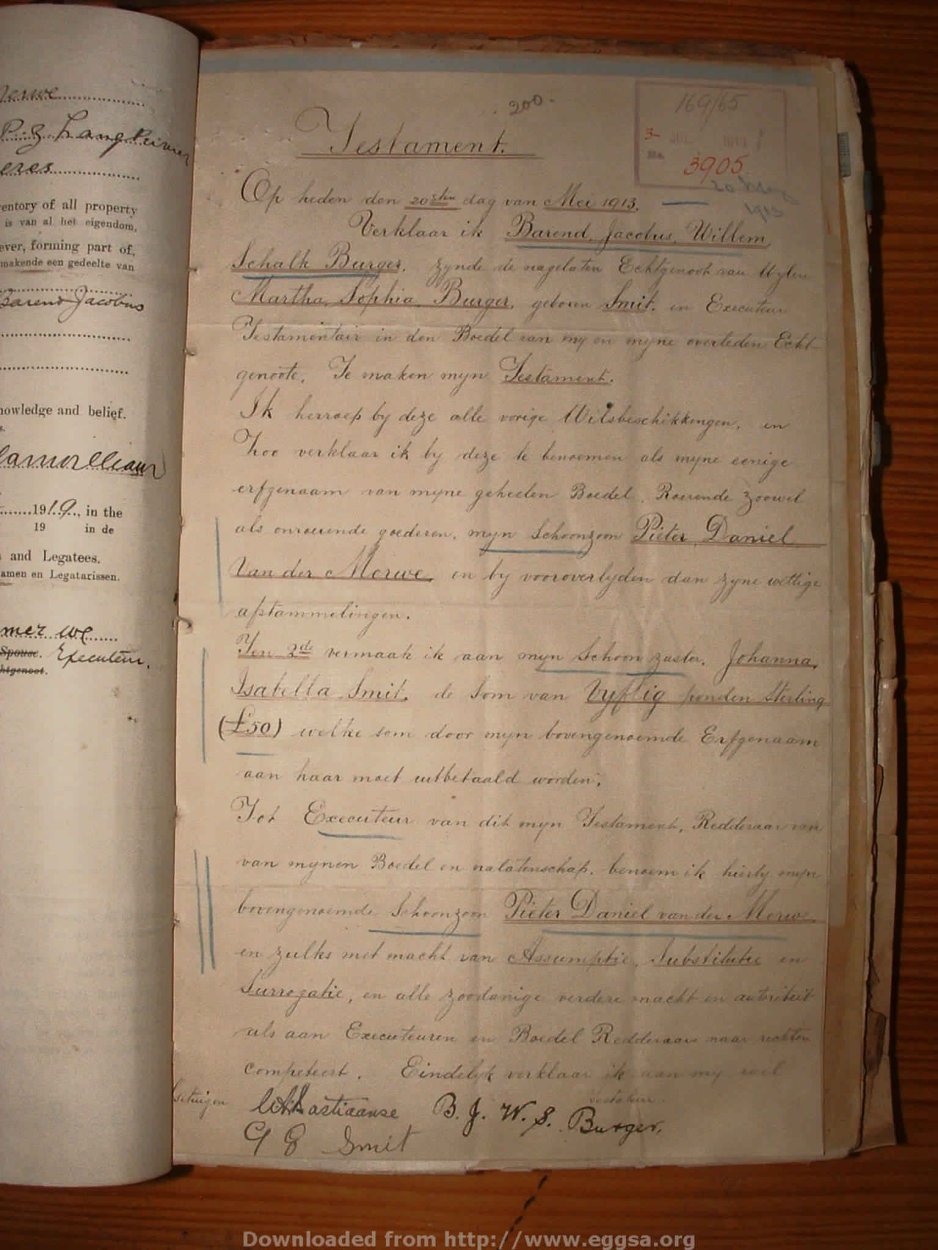 P. z. Langkuier
eres
entory of all property
is van al het eigendom,
ever, forming part of,
makende een gedeelte van
Barend Jacobus
nowledge and belief.
1919, in the
19 in de
and Legatees.
amen en Legatarissen.
Spouse. Executeur.
htgenoot.
200.
169/65
3-
No.
3905
20 May
1913
Testament.
Op heden den 20sten dag van Mei 1913.
Verklaar ik Barend Jacobus Willem
Schalk Burger, zynde de nagelaten Echtgenoot van Wylen
Martha Sophia Burger, geboren Smit. en Executeur
Testamentair in den Boedel van my en myne overleden Echt-
genoote, Te maken myn Testament.
Ik herroep by deze alle vorige Wilsbeschikkingen, en
Zoo verklaar ik by deze te benoemen als myne eenige
erfgenaam van myne geheelen Boedel, Roerende zoowel
als onroerende goederen, myn Schoonzoon Pieter Daniel
Van der Merwe, en by vooroverlyden dan zyne wettige
afstammelingen.
Ten 2de vermaak ik aan myn Schoon zuster, Johanna
Isabella Smit, de Som van Vyftig ponden Sterling
(£50) welke som door myn bovengenoemde Erfgenaam
aan haar moet uitbetaald worden;
Tot Executeur van dit myn Testament, Redderaar van
van mynen Boedel en nalatenschap, benoem ik hierby myn
bovengenoemde Schoonzoon Pieter Daniel van der Merwe
en zulks met macht van Assumptie, Substitutie en
Surrogatie, en alle zoodanige verdere macht en autoriteit
als aan Executeuren en Boedel Redderaars naar rechten
competeert. Eindelyk verklaar ik aan my wel
Getuigen Testateur.
Bastiaanse B. J. W. S. Burger.
G 8 Smit
Downloaded from http://www.eggsa.org